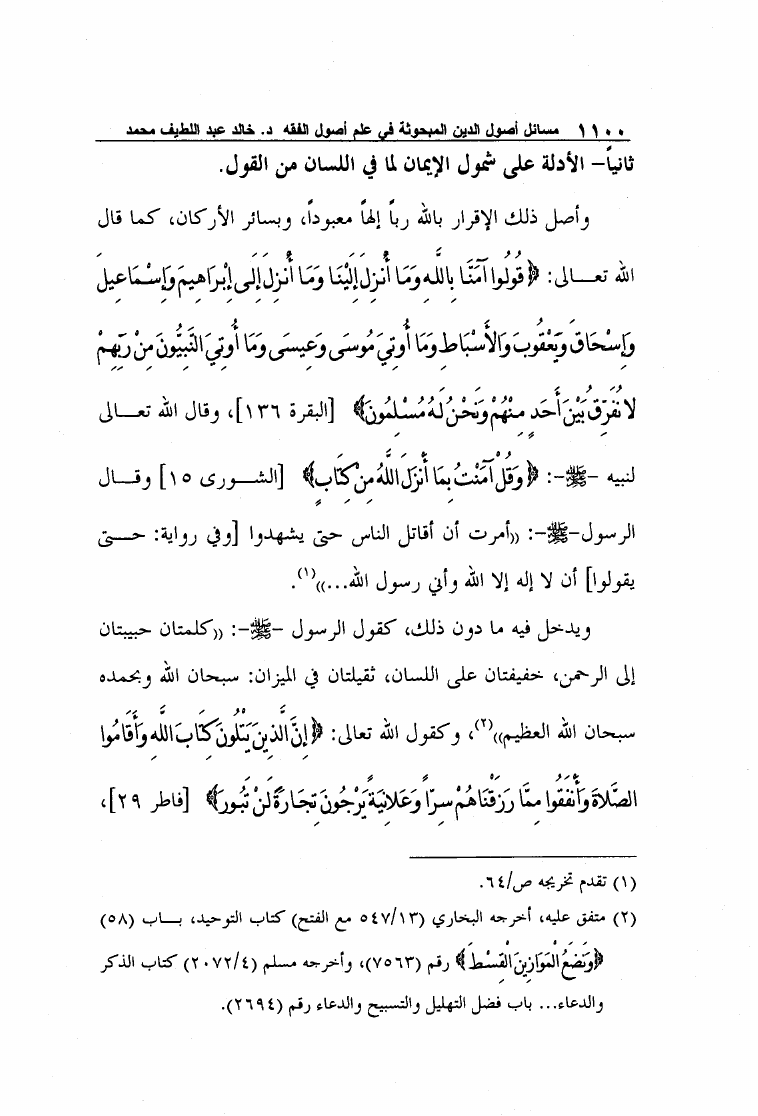 ١١٠٠ مسائل أصول الدين المبحوثة في علم أصول الفقه د. خالد عبد اللطيف محمد
ثانياً- الأدلة على شمول الإيمان لما في اللسان من القول.
وأصل ذلك الإقرار بالله رباً إلهاً معبوداً، وبسائر الأركان، كما قال
الله تعـــالى: ﴿قُولُوا آمَنَّا بِاللَّهِ وَمَا أُنزِلَ إِلَيْنَا وَمَا أُنزِلَ إِلَى إِبْرَاهِيمَ وَإِسْمَاعِيلَ
وَإِسْحَاقَ وَيَعْقُوبَ وَالأَسْبَاطِ وَمَا أُوتِيَ مُوسَى وَعِيسَى وَمَا أُوتِيَ النَّبِيُّونَ مِنْ رَبِّهِمْ
لا نُفَرِّقُ بَيْنَ أَحَدٍ مِنْهُمْ وَنَحْنُ لَهُ مُسْلِمُونَ﴾ [البقرة ١٣٦]، وقال الله تعـــالى
لنبيه -ﷺ-: ﴿وَقُلْ آمَنْتُ بِمَا أَنزَلَ اللَّهُ مِنْ كِتَابٍ﴾ [الشـــورى ١٥] وقـــال
الرسول-ﷺ-: ((أمرت أن أقاتل الناس حتى يشهدوا [وفي رواية: حـــتى
يقولوا] أن لا إله إلا الله وأني رسول الله...))(١).
ويدخل فيه ما دون ذلك، كقول الرسول -ﷺ-: ((كلمتان حبيبتان
إلى الرحمن، خفيفتان على اللسان، ثقيلتان في الميزان: سبحان الله وبحمده
سبحان الله العظيم))(٢)، وكقول الله تعالى: ﴿إِنَّ الَّذِينَ يَتْلُونَ كِتَابَ اللَّهِ وَأَقَامُوا
الصَّلاةَ وَأَنْفَقُوا مِمَّا رَزَقْنَاهُمْ سِرّاً وَعَلانِيَةً يَرْجُونَ تِجَارَةً لَنْ تَبُورَ﴾ [فاطر ٢٩]،
(١) تقدم تخريجه ص/٦٤.
(٢) متفق عليه، أخرجه البخاري (٥٤٧/١٣ مع الفتح) كتاب التوحيد، بـــاب (٥٨)
﴿وَنَضَعُ الْمَوَازِينَ الْقِسْطَ﴾ رقم (٧٥٦٣)، وأخرجه مسلم (٢٠٧٢/٤) كتاب الذكر
والدعاء... باب فضل التهليل والتسبيح والدعاء رقم (٢٦٩٤).